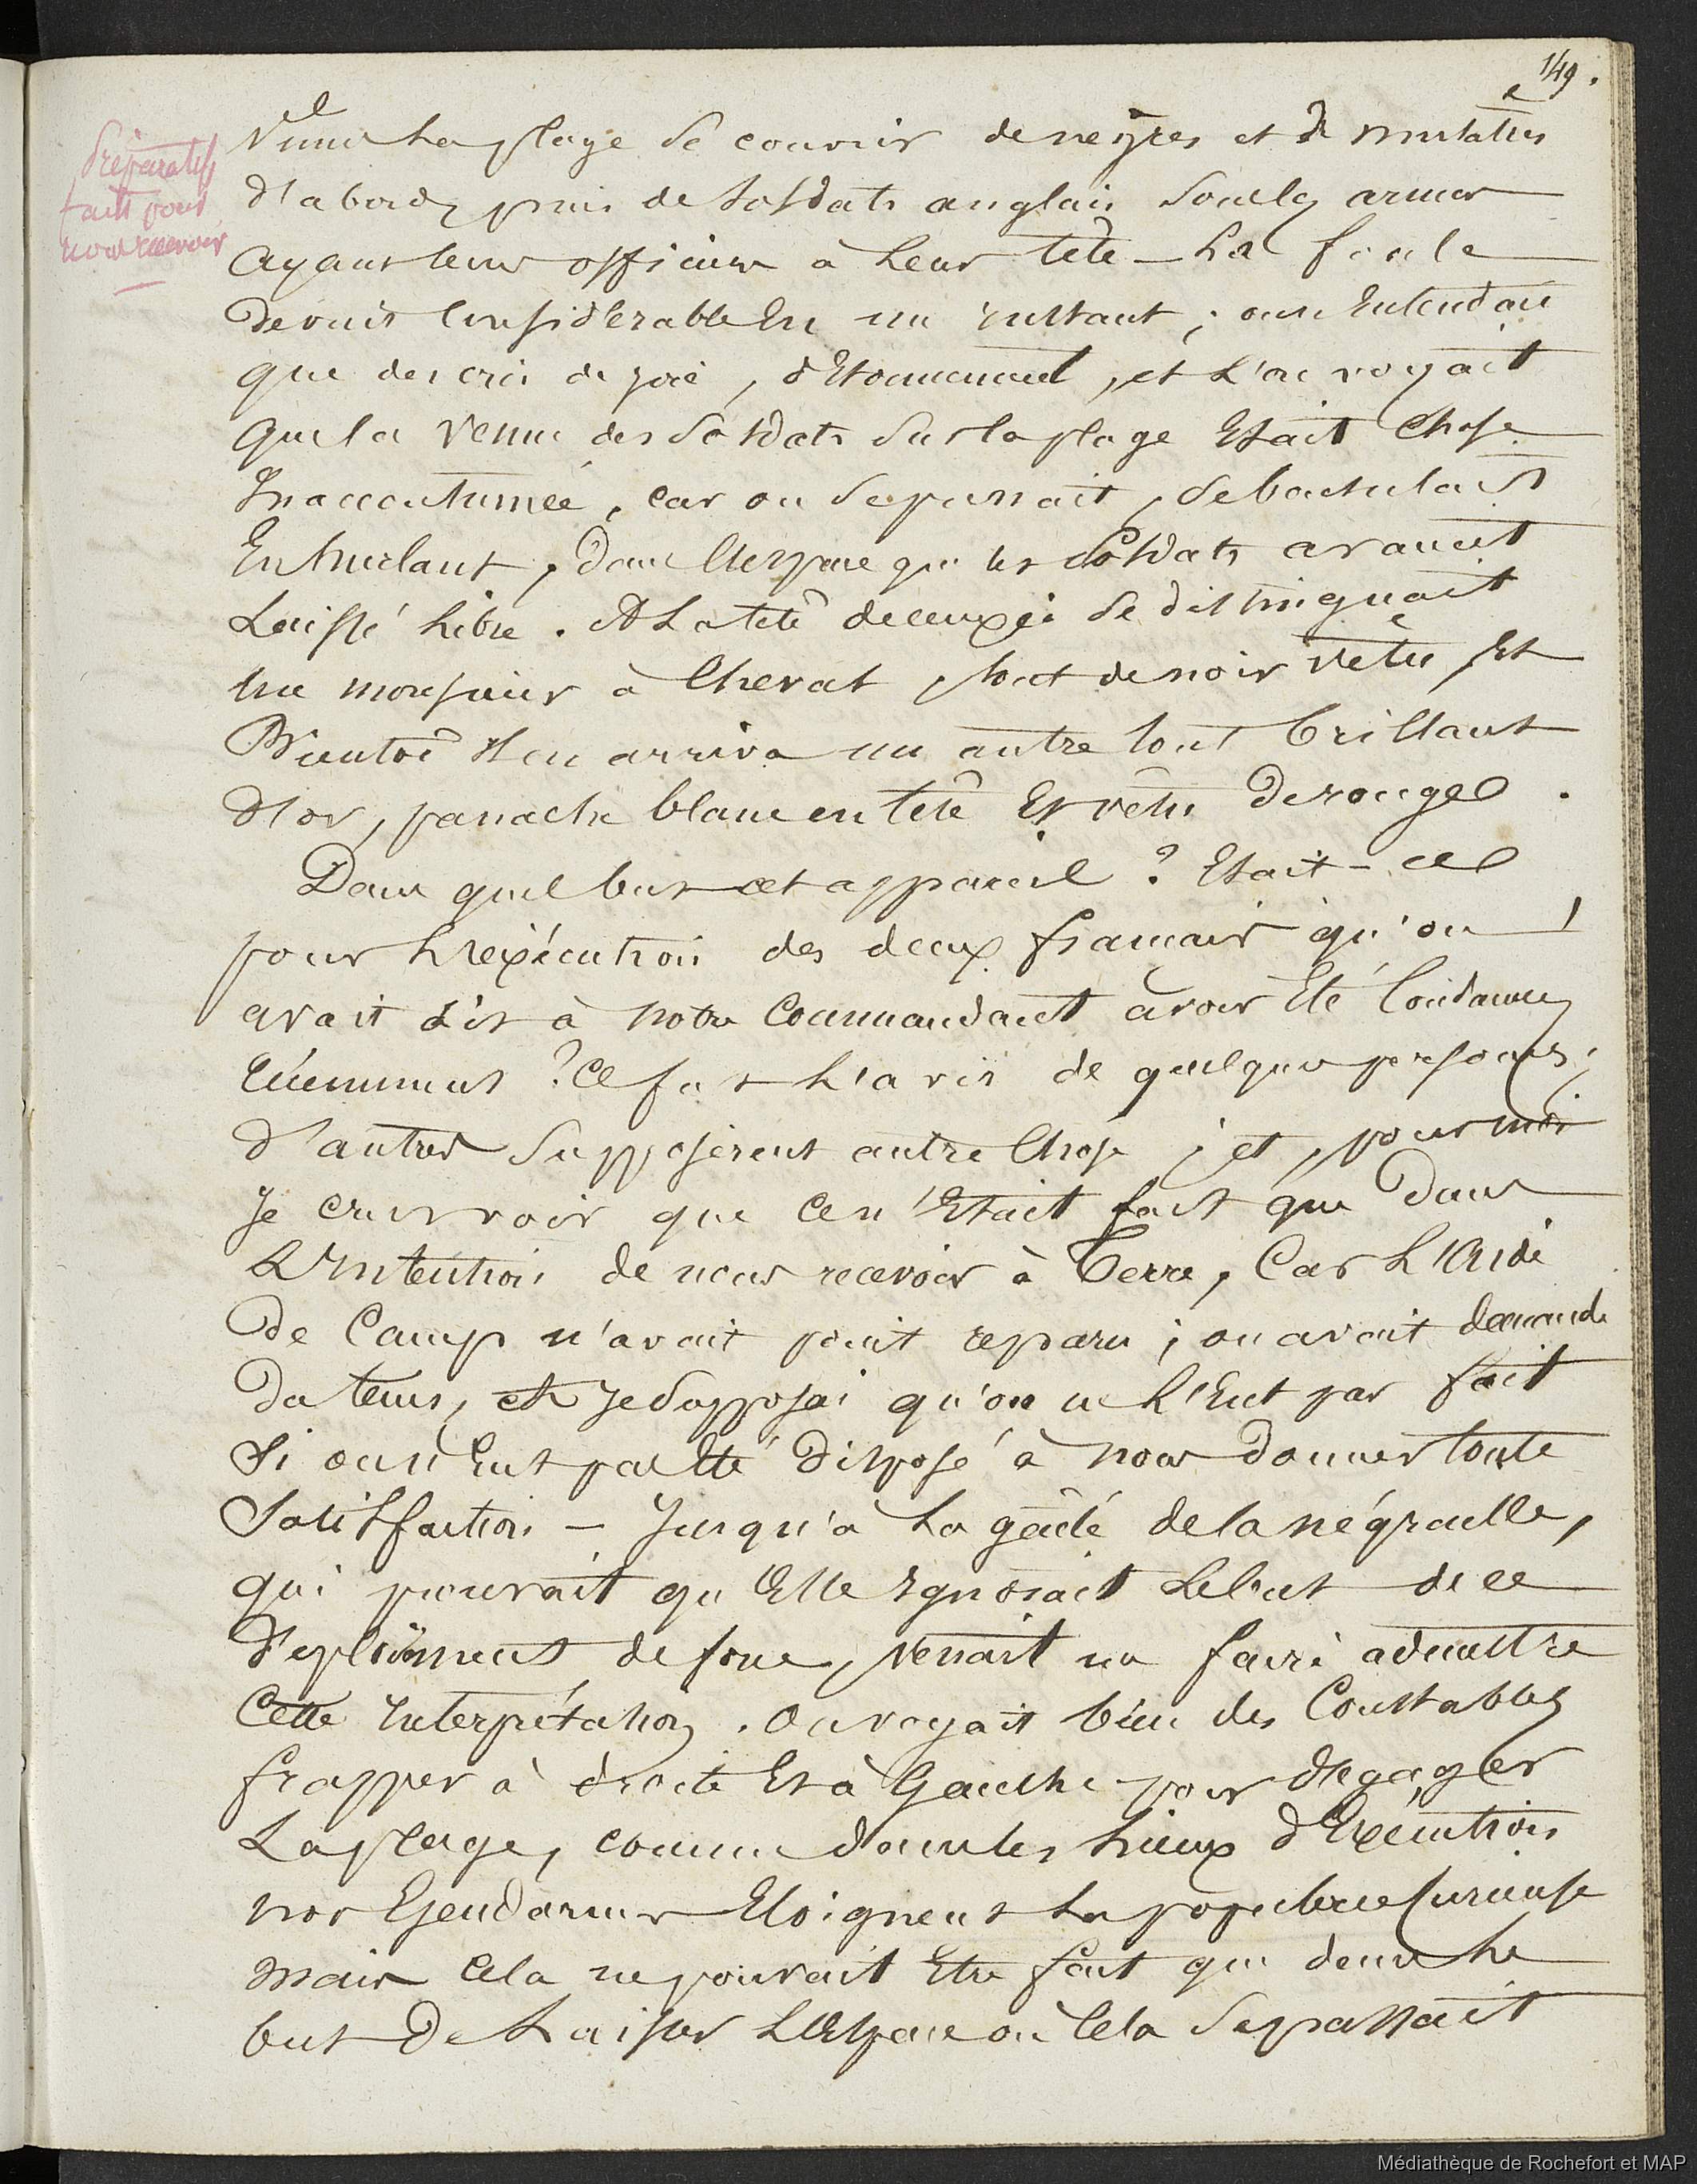 149.
Préparatifs
faits pour
nous recevoir
la plage se couvrir de nègres et de mulatres
d'abord, puis de soldats anglais sous les armes
ayant leurs officiers à leur tête — La foule
devint considérable en un instant ; on n'entendait
que des cris de joie, d'Etonnement, et l'on voyait
que la venue des soldats sur la plage Etait chose
Inaccoutumée, car on se pressait, se bousculait
En hurlant, dans l'espace que les soldats avaient
Laissé libre. A La tête de ceux ci se distinguait
un monsieur à Cheval, tout de noir vêtu, Et
Bientôt Il en arriva un autre tout brillant
d'or, panache blanc en tête Et vêtu de rouge.
Dans quel but cet appareil ? Etait-ce
pour L'exécution des deux français qu'on
avait dit à notre Commandant avoir Eté Condamnés
? Ce fut L'avis de quelques personnes ;
d'autres supposèrent autre Chose ; et, pour moi
Je crus voir que ce n'Etait fait que dans
L'Intention de nous recevoir à Terre, Car L'Aide
De Camp n'avait point reparu ; on avait demandé
Du tems, et Je supposai qu'on ne L'Eut pas fait
Si on n'Eut pas Eté disposé à nous donner toute
Satisfaction — Jusqu'à La gaité de la négraille,
qui prouvait qu'Elle Ignorait Le but de ce
Déploiement de force, venait me faire admettre
Cette Interprétation. On voyait bien des Constables
frapper à droite Et à Gauche pour dégager
La plage, comme dans les Lieux d'Exécution
nos Gendarmes Eloignent La populace Curieuse
mais Cela ne pouvait Etre fait que dans Le
but De Laisser L'Espace où Cela se passait
Médiathèque de Rochefort et MAP